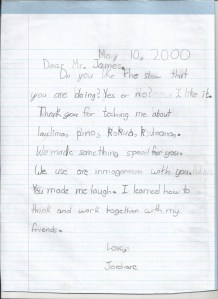 May 10, 2000
Dear Mr. James,
Do you like the show that
you are doing? Yes or no? I like it.
Thank you for teching me about
pino,
We made something speail for you.
We use are inmagenashen with you.
You made me laugh. I learned how to
think and work together with my
friends.
Love,